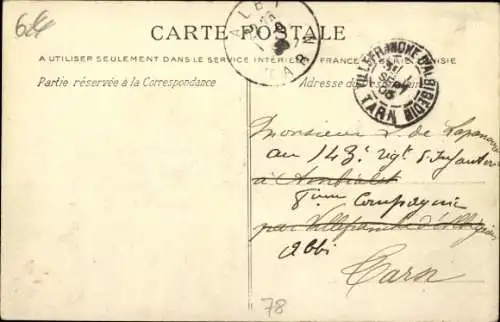 624
CARTE POSTALE
A UTILISER SEULEMENT DANS LE SERVICE INTÉRIEUR FRANCE
Partie réservée à la Correspondance
Adresse du
VILLEFRANCHE D'ALBIGEOIS
TARN
Monsieur de
au 143e Rigt
à Ambialet
8eme Compagnie
par Villefranche d'Albigeois
Albi
Tarn
78